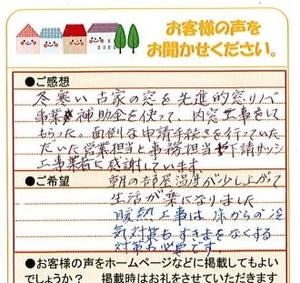 お客様の声を
お聞かせください。
●ご感想
冬寒い古家の窓を先進的窓リノベ
事業補助金を使って、内窓工事をして
もらった。面倒な申請手続きを行っていた
だいた営業担当と事務担当、下請サッシ
工事業者に感謝しています。
●ご希望 朝の部屋温度が少し上がって
生活が楽になりました
暖熱工事は床からの冷
気対策もすきまをなくする
対策も必要です
●お客様の声をホームページなどに掲載してもよい
でしょうか? 掲載時はお礼をさせていただきます